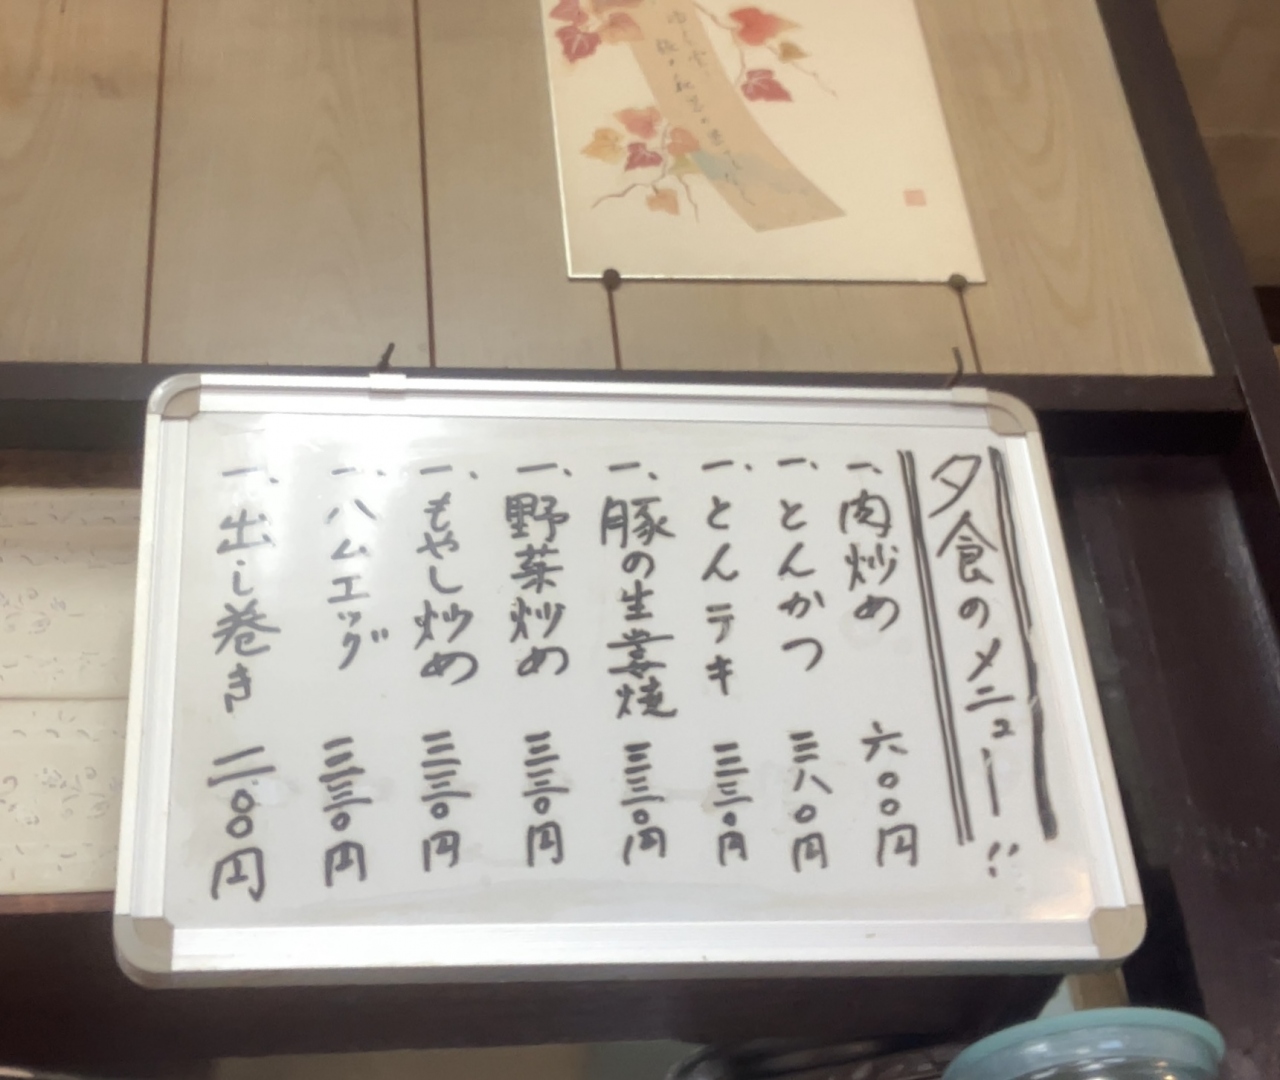 夕食のメニュー!!
一、肉炒め 六〇〇円
一、とんかつ 三八〇円
一、とんテキ 三三〇円
一、豚の生姜焼 三三〇円
一、野菜炒め 三三〇円
一、もやし炒め 三三〇円
一、ハムエッグ 三三〇円
一、出し巻き 二〇〇円